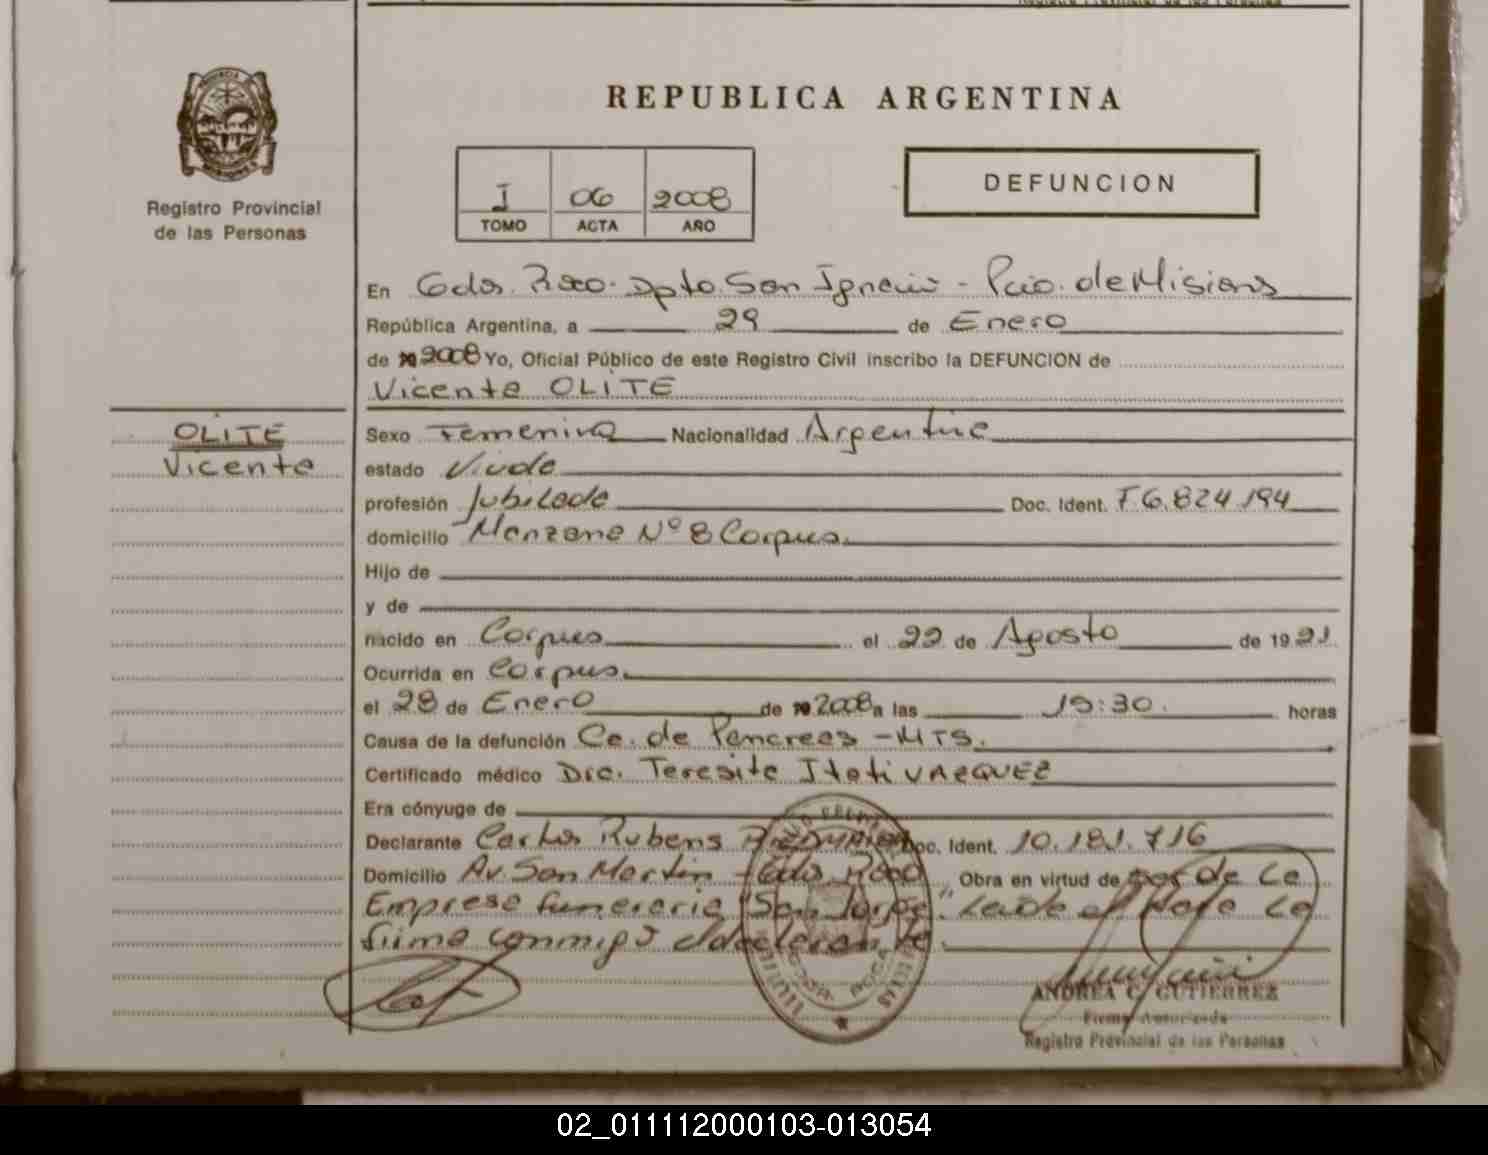 REPUBLICA ARGENTINA
Registro Provincial
de las Personas
I 06 2008
TOMO ACTA AÑO
DEFUNCION
En Gdor. Roca. Dpto. San Ignacio - Pcia. de Misiones
República Argentina, a 29 de Enero
de 2008 Yo, Oficial Público de este Registro Civil inscribo la DEFUNCION de
Vicente OLITE
OLITE
Vicente
Sexo Femenina Nacionalidad Argentina
estado Viuda
profesión Jubilada Doc. Ident. F.6.824.194
domicilio Manzana Nº 8 Corpus.
Hijo de
y de
nacido en Corpus el 22 de Agosto de 1921
Ocurrida en Corpus.
el 28 de Enero de 2008 a las 19:30. horas
Causa de la defunción Ca. de Pancreas - MTS.
Certificado médico Dra. Teresita Itati VAZQUEZ
Era cónyuge de
Declarante Carlos Rubens Doc. Ident. 10.181.716
Domicilio Av. San Martin - Gdor. Roca Obra en virtud de ser de la
Empresa funeraria "San Jorge". Leida el Acta La
firma conmigo el declarante.
ANDREA C. GUTIERREZ
Firma Autorizada
Registro Provincial de las Personas
02_011112000103-013054